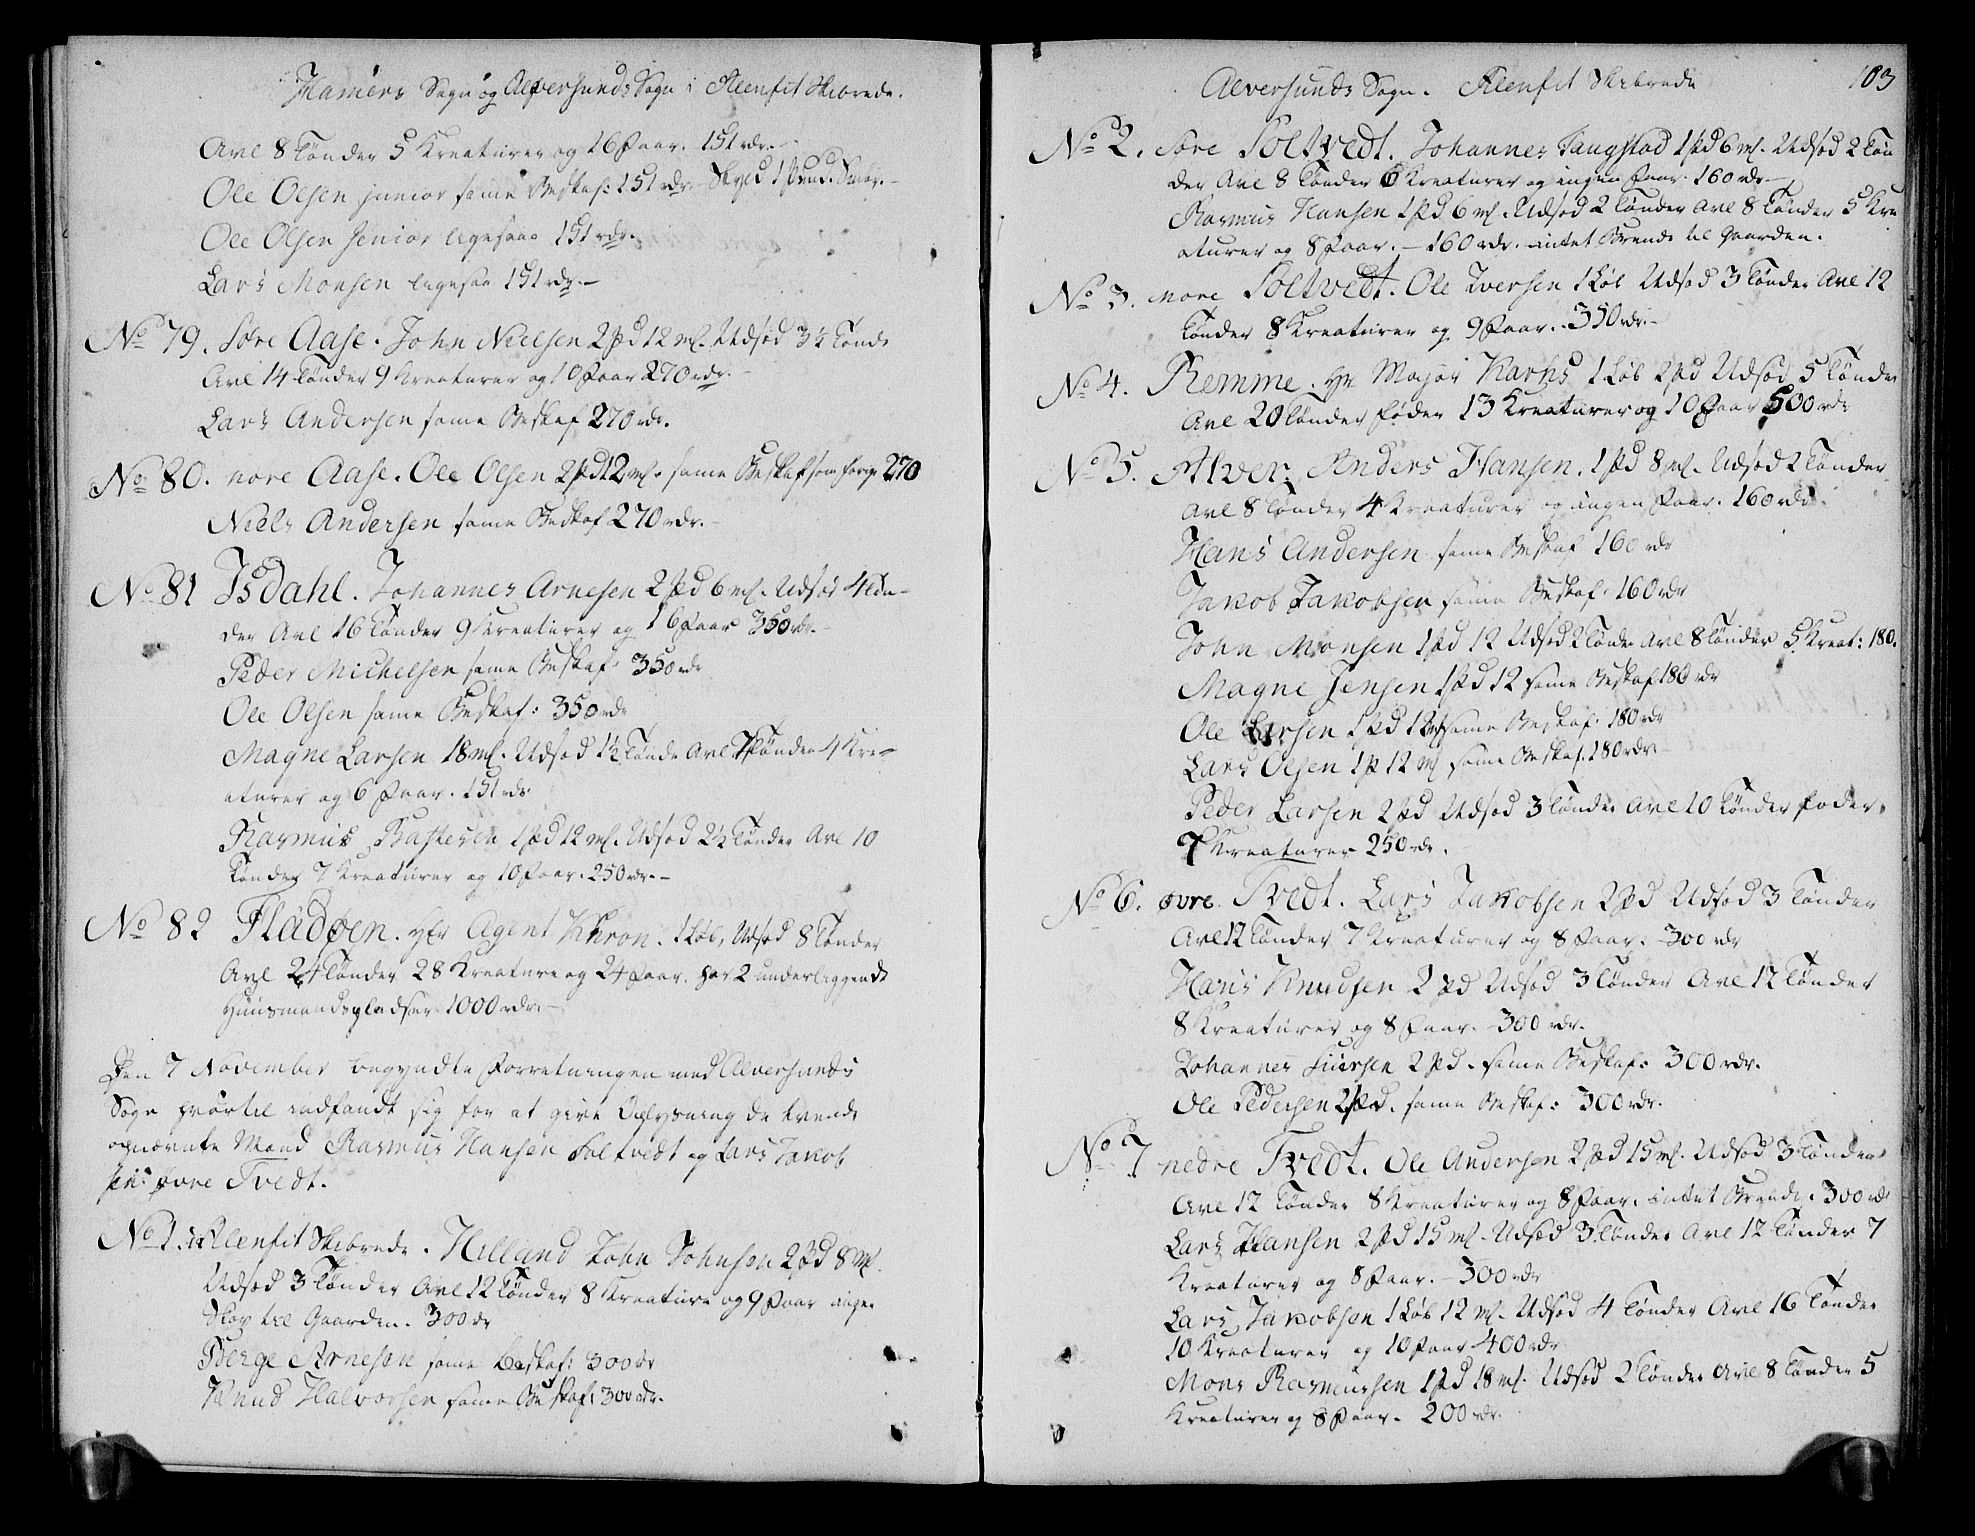 Hamers Sogn og Alversunds Sogn i Alenfit Skibrede.
Avl 8 Tønder 5 Kreaturer og 16 Faar. 151 rdr.
Ole Olsen junior same Beskaf: 151 rdr. Skyld 1 Pund. Smør.
Ole Olsen senior ligesaa 151 rdr.
Lars Monsen ligesaa 151 rdr.
No 79. søre Aase. John Nielsen 2 Pd 12 mk. Udsæd 3½ Tønde
Avl 14 Tønder 9 Kreaturer og 10 Faar 270 rdr.
Lars Andersen same Beskaf 270 rdr.
No 80. nore Aase. Ole Olsen 2 Pd 12 mk. same Beskaf som forige 270
Niels Andersen same Beskaf 270 rdr.
No 81 Isdahl. Johannes Arnesen 2 Pd 6 mk. Udsæd 4 Tøn-
der Avl 16 Tønder 9 Kreaturer og 16 Faar 350 rdr.
Peder Michelsen same Beskaf: 350 rdr
Ole Olsen same Beskaf: 350 rdr
Magne Larsen 18 mk. Udsæd 1½ Tønde Avl 7 Tønder 4 Kre-
aturer og 6 Faar. 151 rdr
Rasmus Bastesen 1 Pd 12 mk. Udsæd 2½ Tønder Avl 10
Tønder 7 Kreaturer og 10 Faar. 250 rdr.
No 82 Fladøen. Hr Agent Khron. 1 Løb, Udsæd 8 Tønder
Avl 24 Tønder 28 Kreature og 24 Faar. har 2 underliggende
Huusmandspladser 1000 rdr.
Den 7 November begyndte Forretningen med Alversunds
Sogn hvortil indfandt sig for at give Oplysning de tvende
opnævnte Mænd Rasmus Hansen Soltvedt og Lars Jakob
sen: øvre Tvedt.
No 1. i Alenfit Skibrede. Hilland John Johnsen 2 Pd 8 mk.
Udsæd 3 Tønder Avl 12 Tønder 8 Kreature og 9 Faar ingen
Skov til Gaarden. 300 rdr
Berge Arnesen same beskaf: 300 rdr
Knud Halvorsen same Beskaf: 300 rdr.
Alversunds Sogn. Alenfit Skibrede
103
No 2. søre Soltvedt. Johannes Taugstad 1 Pd 6 mk. Udsæd 2 Tøn
der Avl 8 Tønder 6 Kreaturer og ingen Faar. 160 rdr.
Rasmus Hansen 1 Pd 6 mk. Udsæd 2 Tønder Avl 8 Tønder 5 Kre
aturer og 8 Faar. - 160 rdr. intet Brende til Gaarden.
No 3. nore Soltvedt. Ole Iversen 1 Løb Udsæd 3 Tønder Avl 12
Tønder 8 Kreaturer og 9 Faar. 350 rdr.
No 4. Remme. Hr Major Krohs 1 Løb 2 Pd Udsæd 5 Tønder
Avl 20 Tønder føder 13 Kreaturer og 10 Faar 500 rdr
No 5. Alver. Anders Hansen. 1 Pd 8 mk. Udsæd 2 Tønder
Avl 8 Tønder 4 Kreaturer og ingen Faar. 160 rdr.
Hans Andersen same Beskaf 160 rdr
Jakob Jakobsen same Beskaf. 160 rdr
John Monsen 1 Pd 12 Udsæd 2 Tønder Avl 8 Tønder 5 Kreat: 180.
Magne Jensen 1 Pd 12 same Beskaf 180 rdr
Ole Larsen 1 Pd 12 mk same Beskaf: 180 rdr
Lars Olsen 1 P 12 mk same Beskaf: 180 rdr
Peder Larsen 2 Pd Udsæd 3 Tønder Avl 10 Tønder foder
7 Kreaturer 250 rdr.
No 6. øvre Tvedt. Lars Jakobsen 2 Pd Udsæd 3 Tønder
Avl 12 Tønder 7 Kreaturer og 8 Faar. 300 rdr
Hans Knudsen 2 Pd Udsæd 3 Tønder Avl 12 Tønder
8 Kreaturer og 8 Faar. 300 rdr.
Johannes Iversen 2 Pd. same Beskaf: 300 rdr.
Ole Pedersen 2 Pd. same Beskaf: 300 rdr.
No 7 nedre Tvedt. Ole Andersen 2 Pd 15 mk. Udsæd 3 Tønder
Avl 12 Tønder 8 Kreaturer og 8 Faar. intet Brende. 300 rdr
Lars Hansen 2 Pd 15 mk. Udsæd 3 Tønder Avl 12 Tønder 7
Kreaturer og 8 Faar. - 300 rdr
Lars Jakobsen 1 Løb 12 mk. Udsæd 4 Tønder Avl 16 Tønder
10 Kreaturer og 10 Faar 400 rdr
Mons Rasmussen 1 Pd 18 mk. Udsæd 2 Tønder Avl 8 Tønder 5
Kreaturer og 8 Faar. 200 rdr.